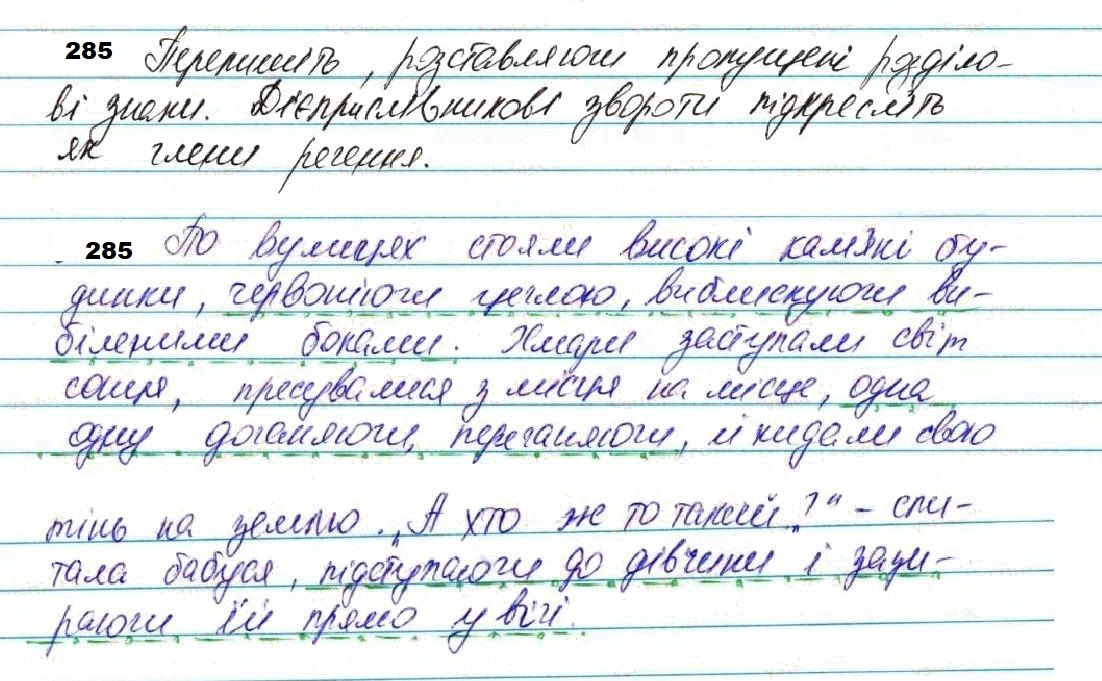 285 Перепишіть, розставляючи пропущені розділо-
ві знаки. Дієприслівникові звороти підкресліть
як члени речення.
285 По вулицях стояли високі кам'яні бу-
динки, червоніючи цеглою, виблискуючи ви-
біленими боками. Хмари заступали світ
сонця, пресувалися з місця на місце, одна
одну доганяючи, переганяючи, й кидали свою
тінь на землю. „А хто ж то такий?" - спи-
тала бабуся, підступаючи до дівчини і зази-
раючи їй прямо у вічі.